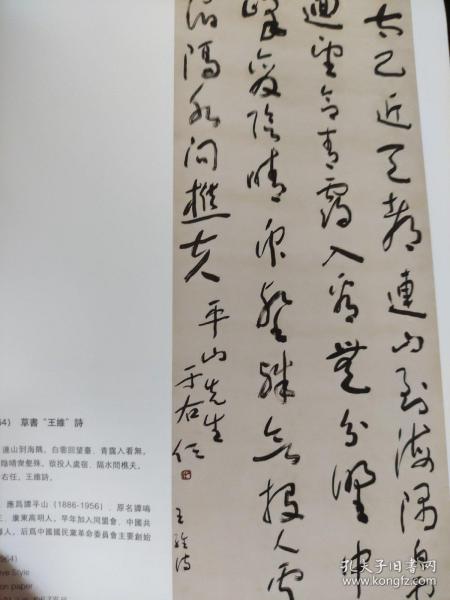 太乙近天都連山到海隅白
迴望合青靄入看無分野中
峰變陰晴衆壑殊欲投人處
宿隔水問樵夫 平山先生
于右任
王維詩
64） 草書“王維”詩
連山到海隅。白雲回望臺，青靄入看無。
陰晴衆壑殊。欲投人處宿，隔水問樵夫。
右任。王維詩。
應爲譚平山（1886-1956），原名譚鳴
廣東高明人。早年加入同盟會，中國共
人，后爲中國國民黨革命委員會主要創始
964)
ive Style
on paper
孔夫子旧书网